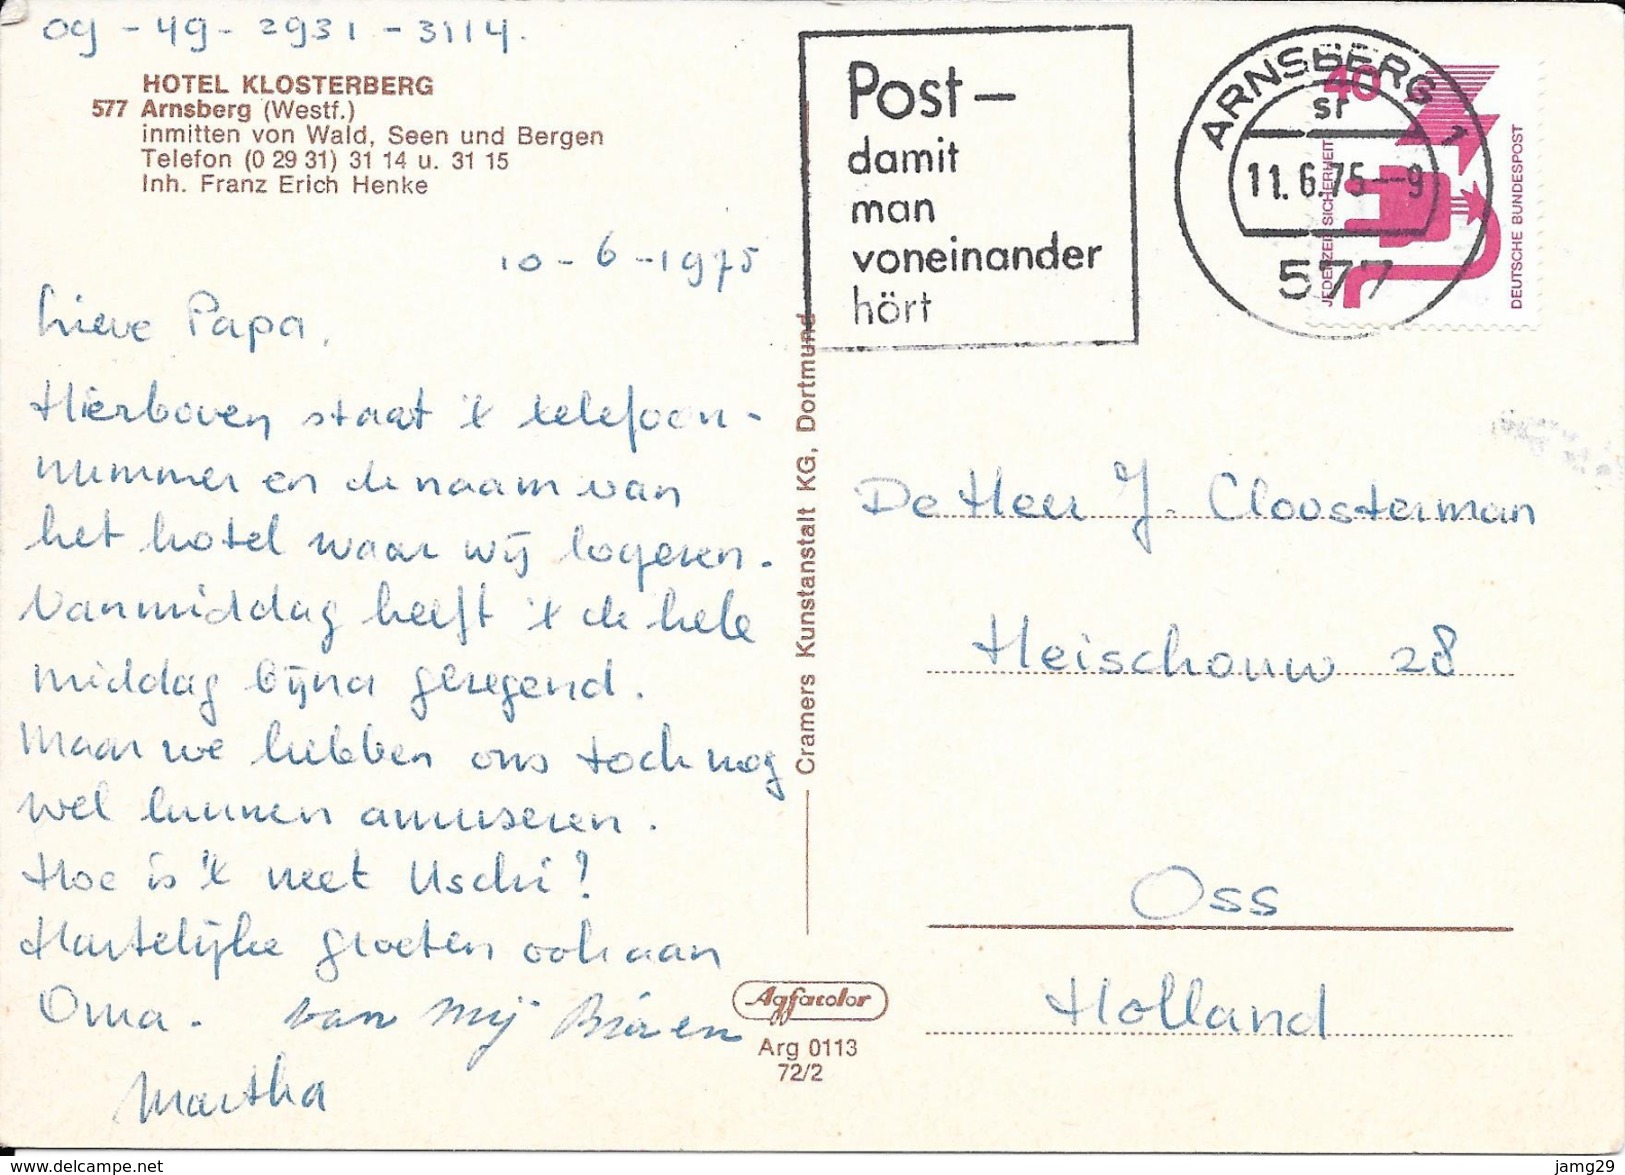 09-49-2931-3114.
HOTEL KLOSTERBERG
577 Arnsberg (Westf.)
inmitten von Wald, Seen und Bergen
Telefon (0 29 31) 31 14 u. 31 15
Inh. Franz Erich Henke
10-6-1975
Lieve Papa,
Hierboven staat 't telefoon-
nummer en de naam van
het hotel waar wij logeren.
Vanmiddag heeft 't de hele
middag bijna geregend.
Maar we hebben ons toch nog
wel kunnen amuseren.
Hoe is 't met Uschi?
Hartelijke groeten ook aan
Oma. van mij
Martha
Cramers Kunstanstalt KG, Dortmund
Agfacolor
Arg 0113
72/2
Post –
damit
man
voneinander
hört
ARNSBERG 1
sr
11.6.75--9
577
40
JEDERZEIT SICHERHEIT
DEUTSCHE BUNDESPOST
De Heer J. Cloosterman
Heischouw 28
Oss
Holland
www.delcampe.net
jamg29